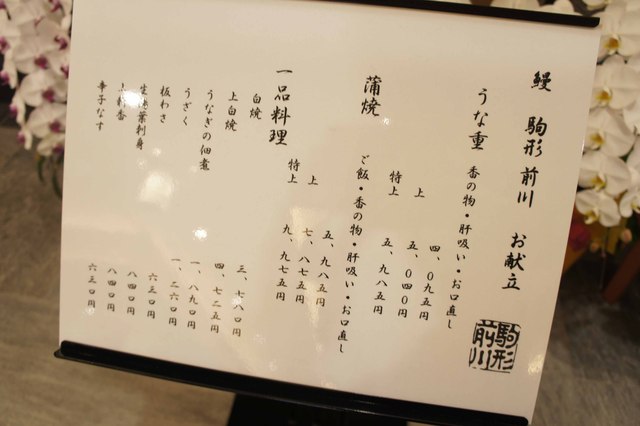 鰻 駒形 前川 お献立
駒形
前川
うな重 香の物・肝吸い・お口直し
四、〇九五円
上 五、〇四〇円
特上 五、九八五円
蒲焼 ご飯・香の物・肝吸い・お口直し
五、九八五円
上 七、八七五円
特上 九、九七五円
一品料理
白焼 三、七八〇円
上白焼 四、七二五円
うなぎの佃煮 一、八九〇円
うざく 一、二六〇円
板わさ 六三〇円
生湯葉刺身 八四〇円
上新香 八四〇円
辛子なす 六三〇円